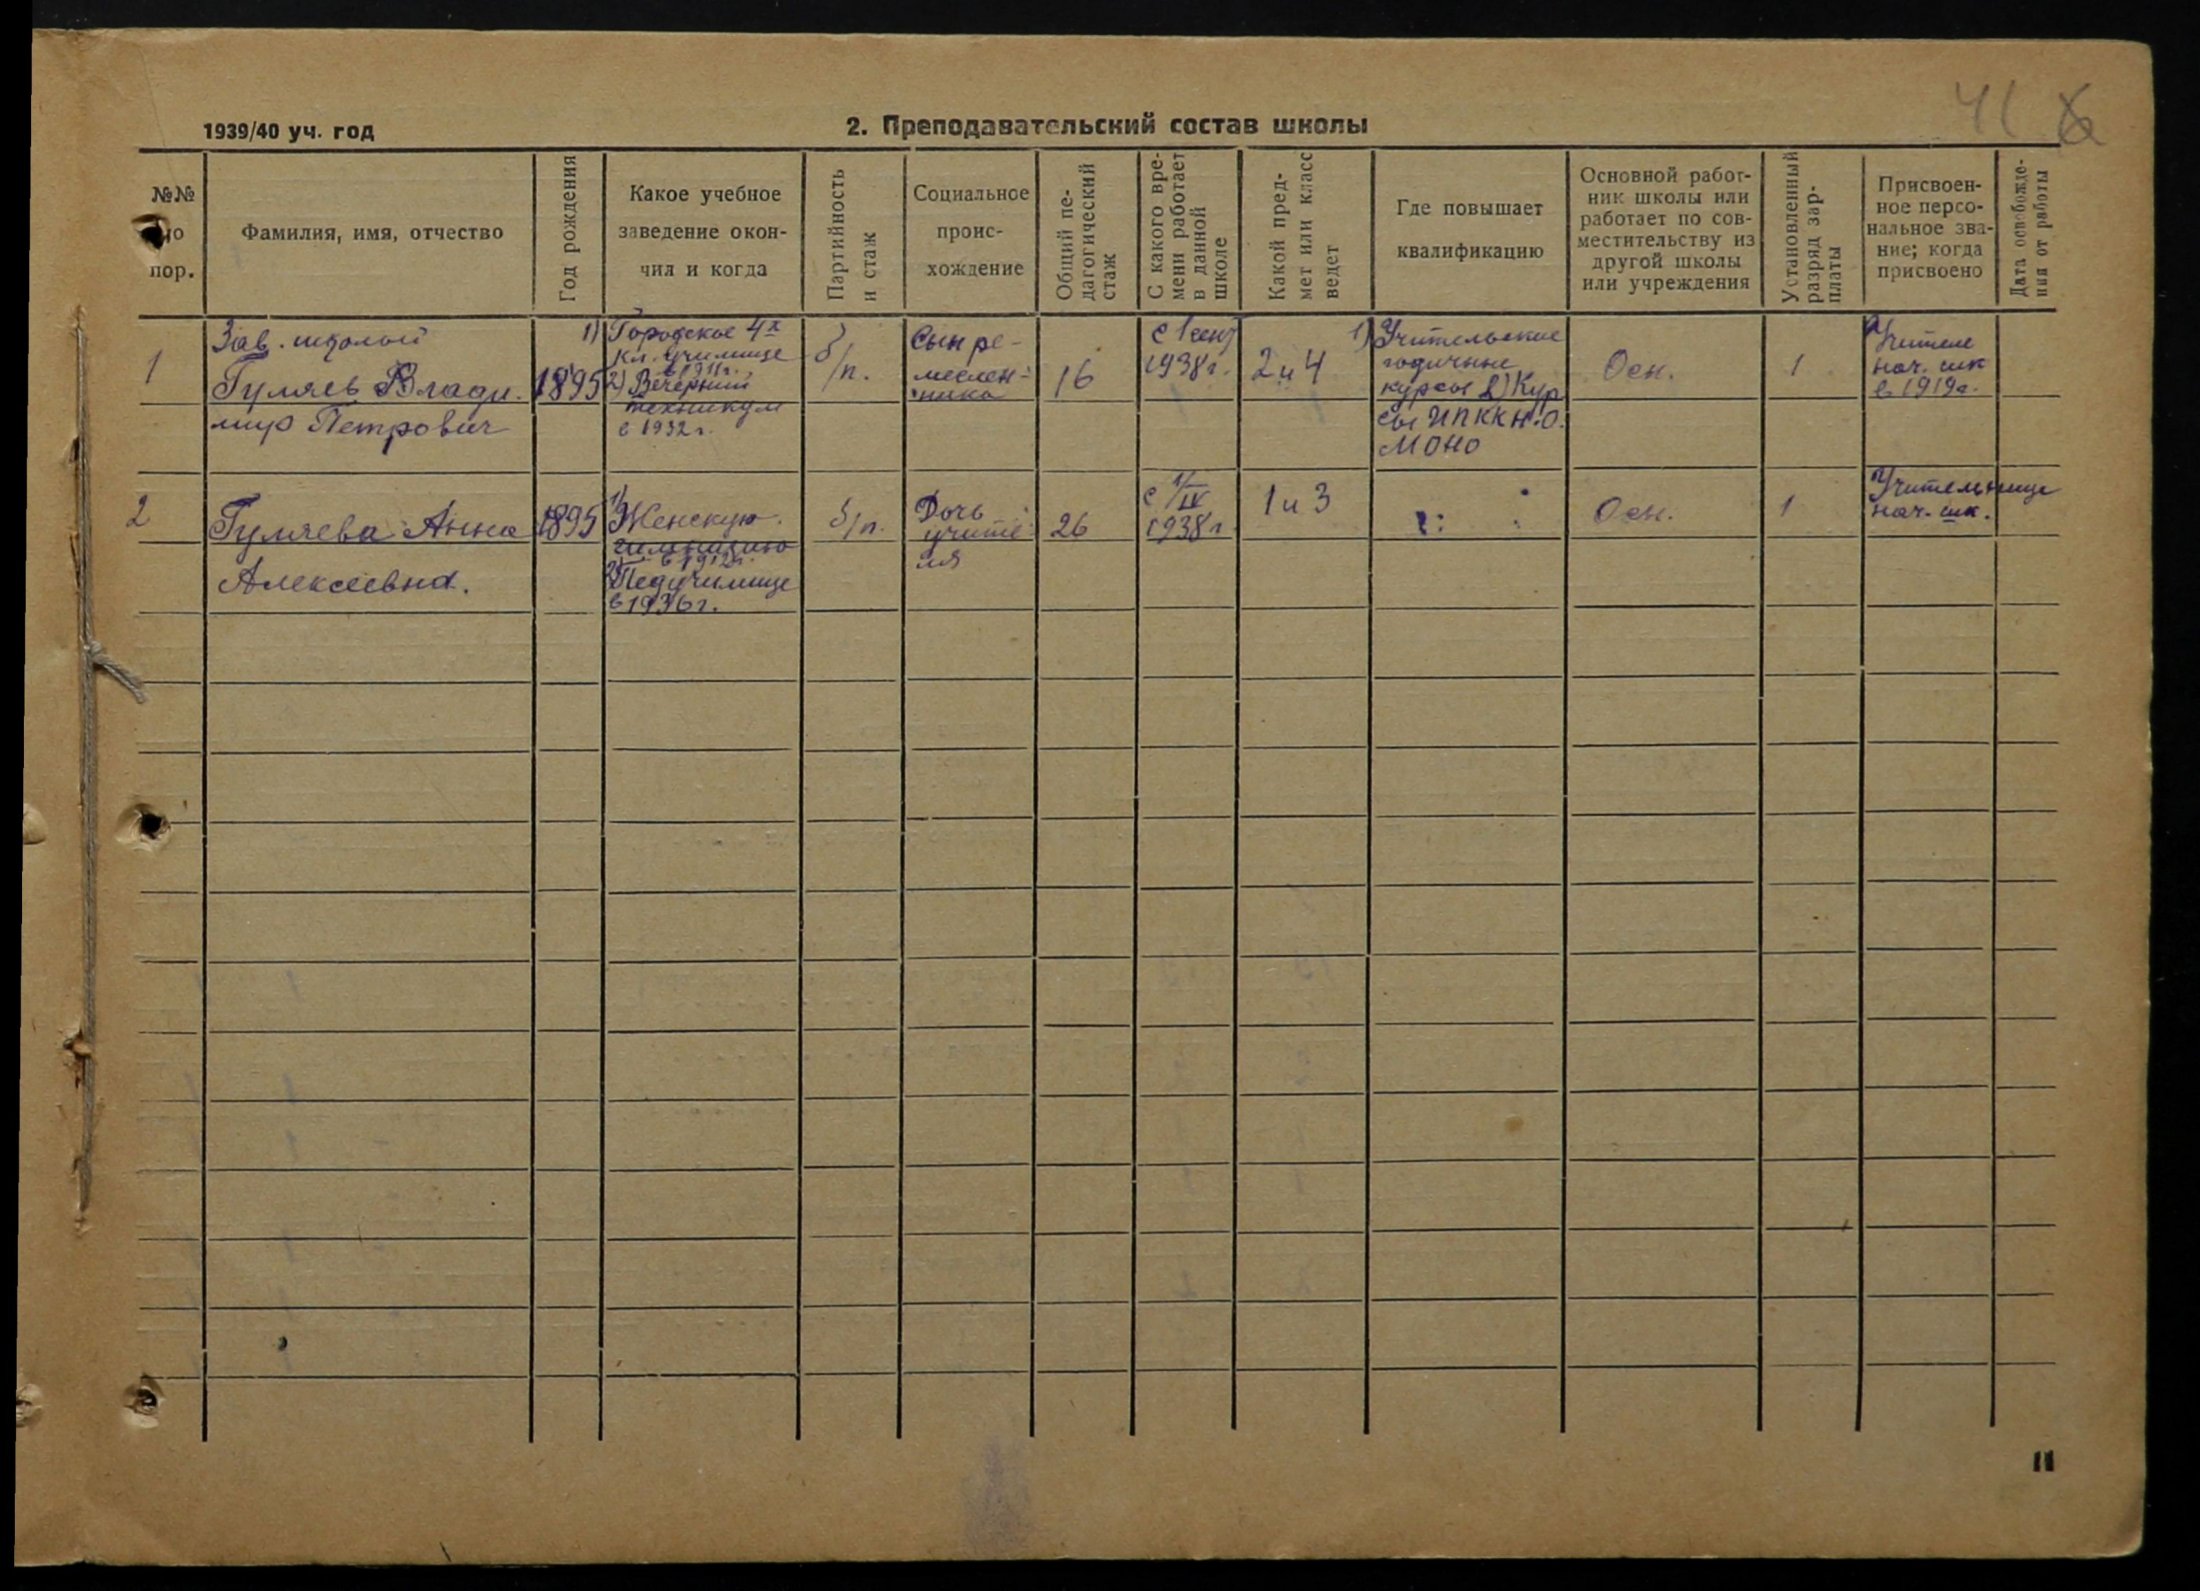 41 6
1939/40 уч. год
2. Преподавательский состав школы
№№
по
пор.
Фамилия, имя, отчество
Год рождения
Какое учебное
заведение окон-
чил и когда
Партийность
и стаж
Социальное
проис-
хождение
Общий пе-
дагогический
стаж
С какого вре-
мени работает
в данной
школе
Какой пред-
мет или класс
ведет
Где повышает
квалификацию
Основной работ-
ник школы или
работает по сов-
местительству из
другой школы
или учреждения
Установленный
разряд зар-
платы
Присвоен-
ное персо-
нальное зва-
ние; когда
присвоено
Дата освобожде-
ния от работы
1
Зав. школой
Гуляев Влади-
мир Петрович
1895
1) Городское 4х
кл. училище
в 1911г.
2) Вечерний
техникум
в 1932 г.
б/п.
Сын ре-
меслен-
ника
16
с 1 сент
1938г.
2 и 4
1) Учительские
годичные
курсы 2) Кур
сы ИПККН.О.
МОНО
Осн.
1
Учителя
нач. шк
в 1919г.
2
Гуляева Анна
Алексеевна.
1895
1) Женскую
гимназию
в 1912г.
2) Педучилище
в 1936г.
б/п.
Дочь
учите-
ля
26
с 1/IX
1938г
1 и 3
Осн.
1
Учительница
нач. шк.
11